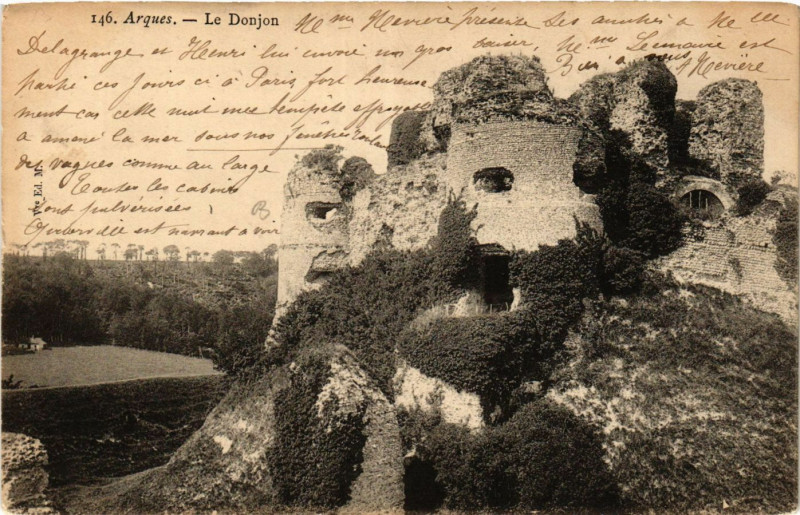 146. Arques. — Le Donjon
Mme Mevière présente ses amitiés à Melle
Delagrange et Henri lui envoie un gros baiser, Mme Lemaire est
parti ces jours ci à Paris fort heureuse
Bien à vous Mevière
ment car cette nuit une tempête effroyable
a amené la mer sous nos fenêtres
des vagues comme au large
Toutes les cabines
sont pulvérisées
c'est navrant à voir
Vve Ed. M